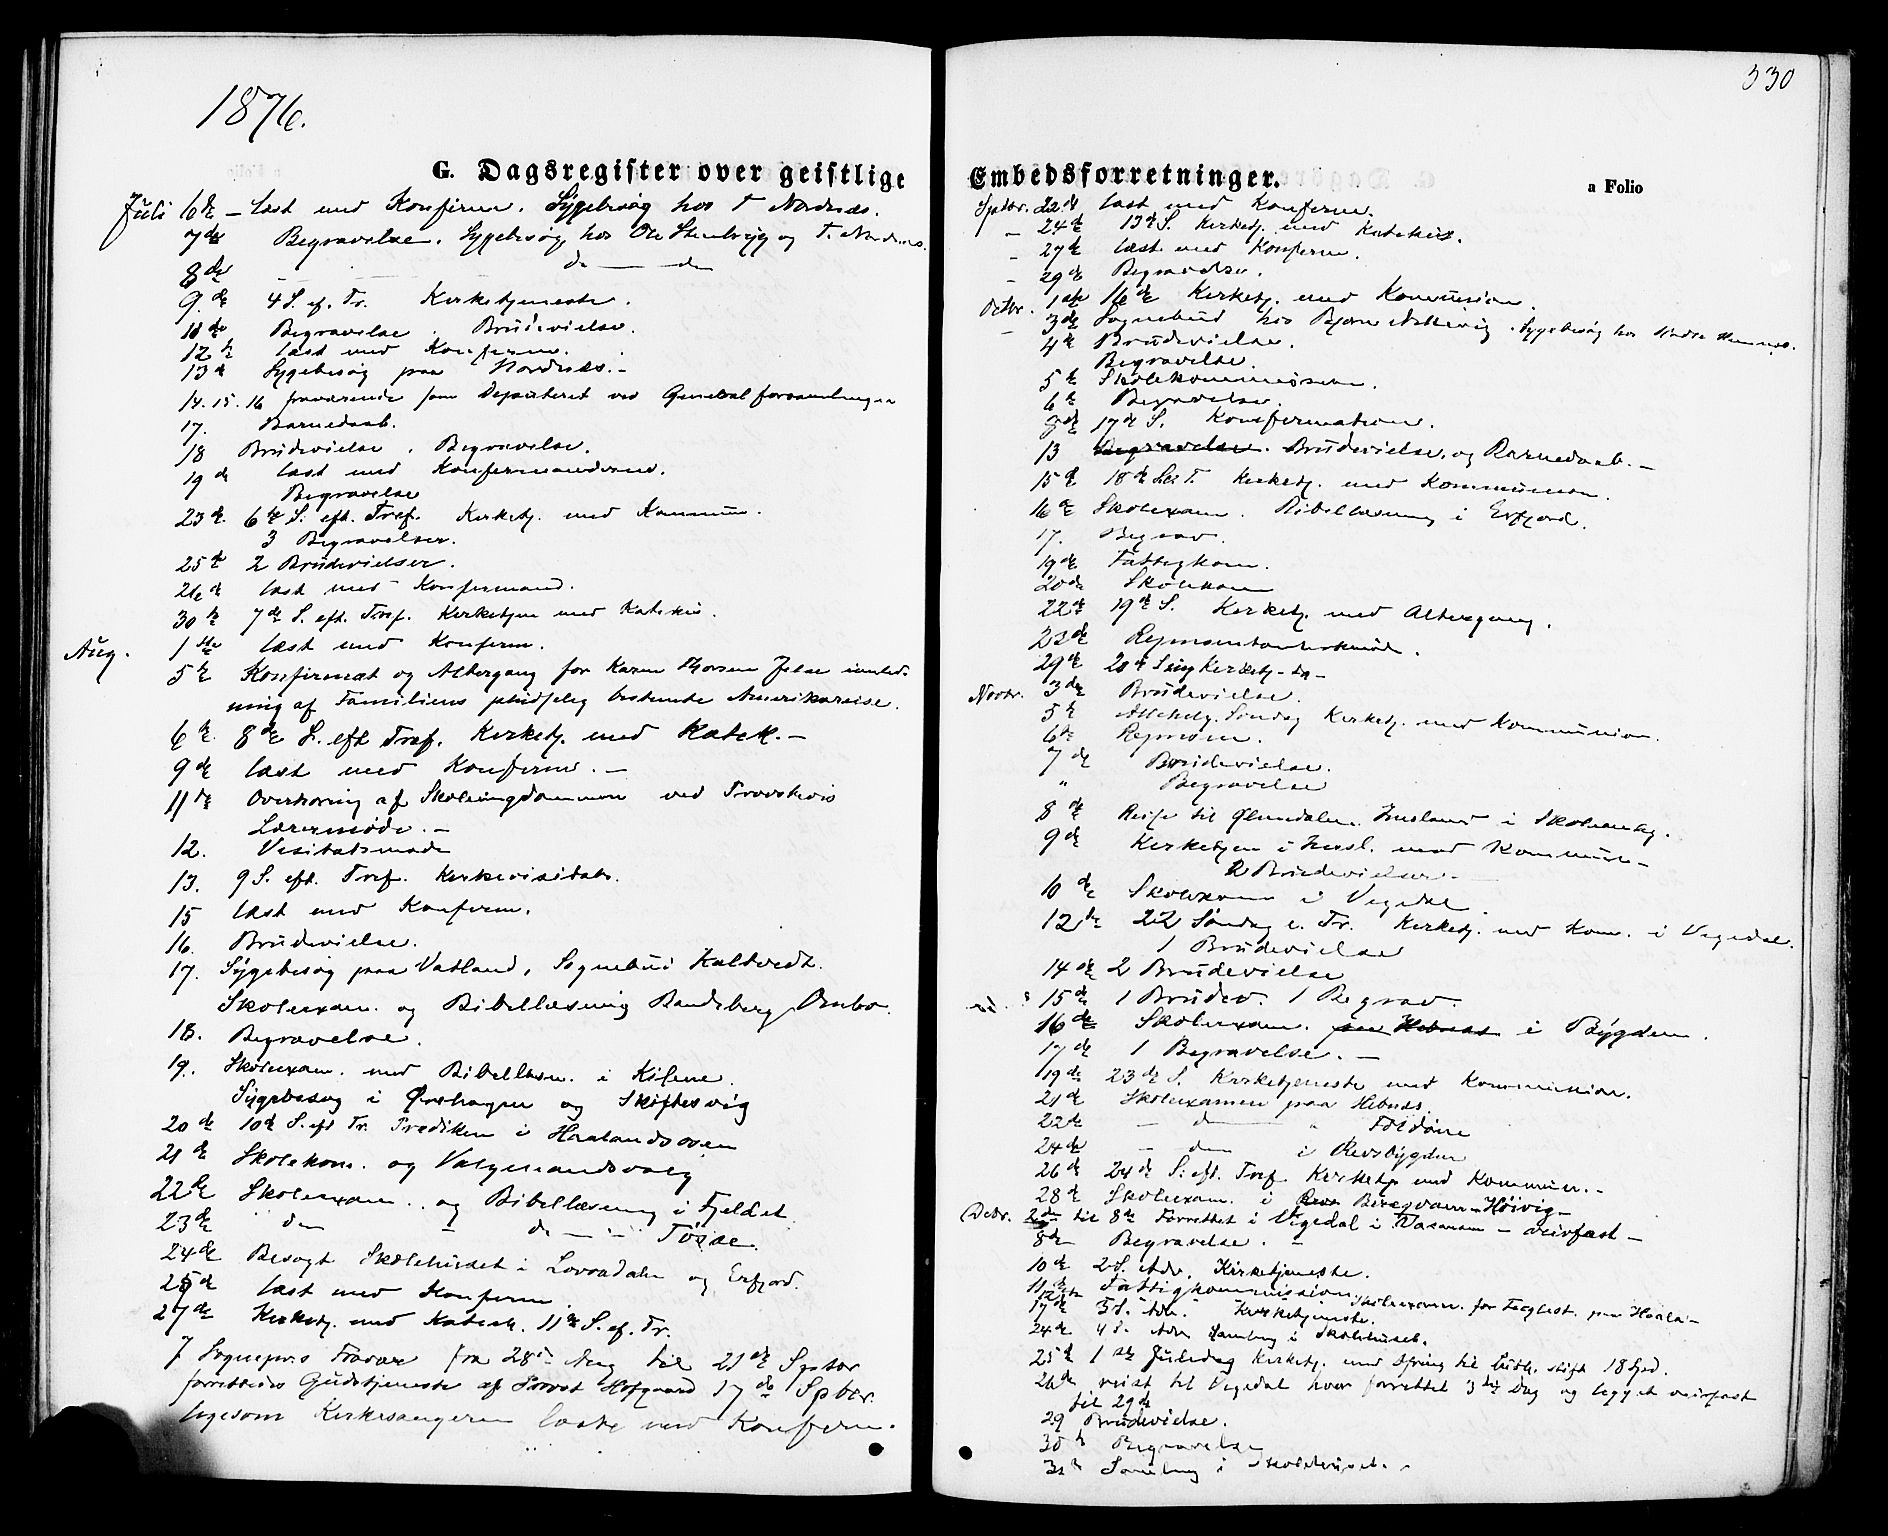 1876.
G. Dagsregister over geistlige
Juli 6te – læst med Konfirm. Sygebesøg hos T Nordnes.
7de Begravelse. Sygebesøg hos Ole og T. Nordnes.
8de – do – do
9de 4 S. ef. Tr. Kirketjeneste.
11de Begravelse. Brudevielse.
12te læst med Konfirm.
13de Sygebesøg paa Nordnes. –
14. 15. 16 fraværende som Deputeret ved Generalforsamlingen
17. Barnedaab.
18 Brudevielse, Begravelse.
19de læst med Konfirmanderne.
Begravelse
23de 6te S. eft. Tref. Kirketj. med Kommun.
3 Begravelser.
25de 2 Brudevielser.
26de læst med Konfirmand.
30te 7de S. eft. Tref. Kirketjen med Katekis.
Aug. 1ste læst med Konfirm.
5te Konfirmat og Altergang for Karen Thorsen Jelse i anled-
ning af Familiens bestemte Amerikareise.
6te 8de S. eft Tref. Kirketj. med Katek. –
9de læst med Konfirm. –
11te Overhøring af Skoleungdommen ved Provstevis
Lærermøde. –
12. Visitatsmøde
13. 9 S. eft. Tref. Kirkevisitats.
15 læst med Konfirm.
16. Brudevielse.
17. Sygebesøg paa Vatland, Sognebud Kaltvedt.
Skolexam. og Bibellæsning Ombo.
18. Begravelse.
19. Skolexam. med Bibellæsn. i
Sygebesøg i og Skiftesvig
20de 10de S. eft Tr. Prædiken i Haalandsosen
21de Skolekom. og Valgmandsvalg
22de Skolexam. og Bibellæsning i Fjeldet
23de do – do –
24de Besøgt Skolehuset i Lovradalen og Erfjord.
25de læst med Konfirm.
27de Kirketj. med Katek. 11te S. ef. Tr.
Sognepres Fravær fra 28de Aug til 21de Septbr
forrettedes Gudstjeneste af Provst 17de Sptbr.
ligesom Kirkesangeren læste med Konfirm.
330
Embedsforretninger.
a Folio
Sptbr. 22de læst med Konfirm.
– 24de 15de S. Kirketj. med Katekis.
– 27de læst med Konfirm.
– 29de Begravelse.
Octbr. 1ste 16de Kirketj. med Kommunion.
– 3de Sognebud hos Bjørn . Sygebesøg hos
4de Brudevielse.
Begravelse.
5te Skolekommission.
6te Begravelse.
8de 17de S. Konfirmation.
13 Begravelse. Brudevielse og Barnedaab. –
15de 18de S. e. T. Kirketj. med Kommunion.
16de Skolexam. Bibellæsning i Erfjord.
17. Begrav.
19de Fattigkom.
20de Skolexam
22de 19de S. Kirketj. med Altergang.
23de Repræsentantskmøde.
29de 20de Søndg Kirketj. – do –
Novbr. 3de Brudevielse.
5te Allehelg. Søndag Kirketj. med Kommunion.
6te Repræsen.
7de Brudevielse.
" Begravelse
8de Reise til Ølmedalen Imsland i Skoleanlg.
9de Kirketjen i Imsl. med Kommun –
2 Brudevielser. –
10de Skolexam i
12te 22 Søndag e. Tr. Kirketj. med Kom. i Vegedal.
1 Brudevielse
14de 2 Brudevielse
15de 1 Brudev. 1 Begrav.
16de Skolexam. paa Hebnes i Bygden.
17de 1 Begravelse. –
19de 23de S. Kirketjeneste med Kommunion.
21de Skolexamen paa Hebnes.
22de – do – "
24de – do – i Revsbygden
26de 24de S. eft. Tref Kirketj med Kommun. –
28de Skolexam. i Høivig –
Decbr. 2den til 8de Forrettet i Vigedal i – veirfast –
8de Begravelse. –
10de 2 S. Adv. Kirketjeneste.
11te Fattigkommission.
12te Skolexamen. for paa Haala-
17de 3 S. Adv. Kirketjeneste.
24de 4 S. Adv Samling i Skolehuset.
25de 1ste Juledag Kirketj. med Ofring til luth. stift 18 Spd.
26de reist til Vegedal hvor forrettet 3die Dag og ligget veirfast
til 29de
29 Brudevielse.
30te Begravelse
31te Samling i Skolehuset.